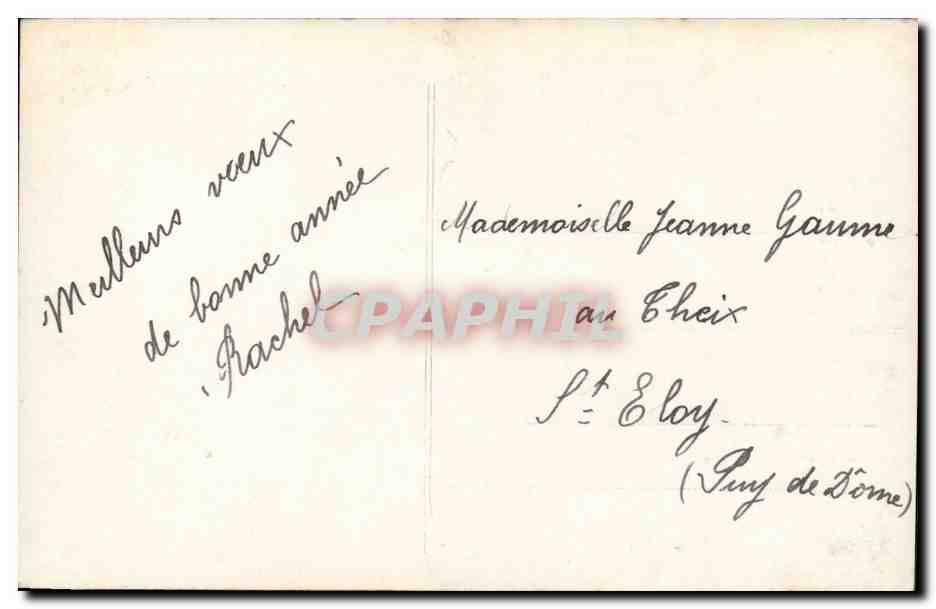 Meilleurs vœux
de bonne année
Rachel
Mademoiselle Jeanne Gaume
au Theix
St Eloy.
(Puy de Dôme)
CPAPHIL